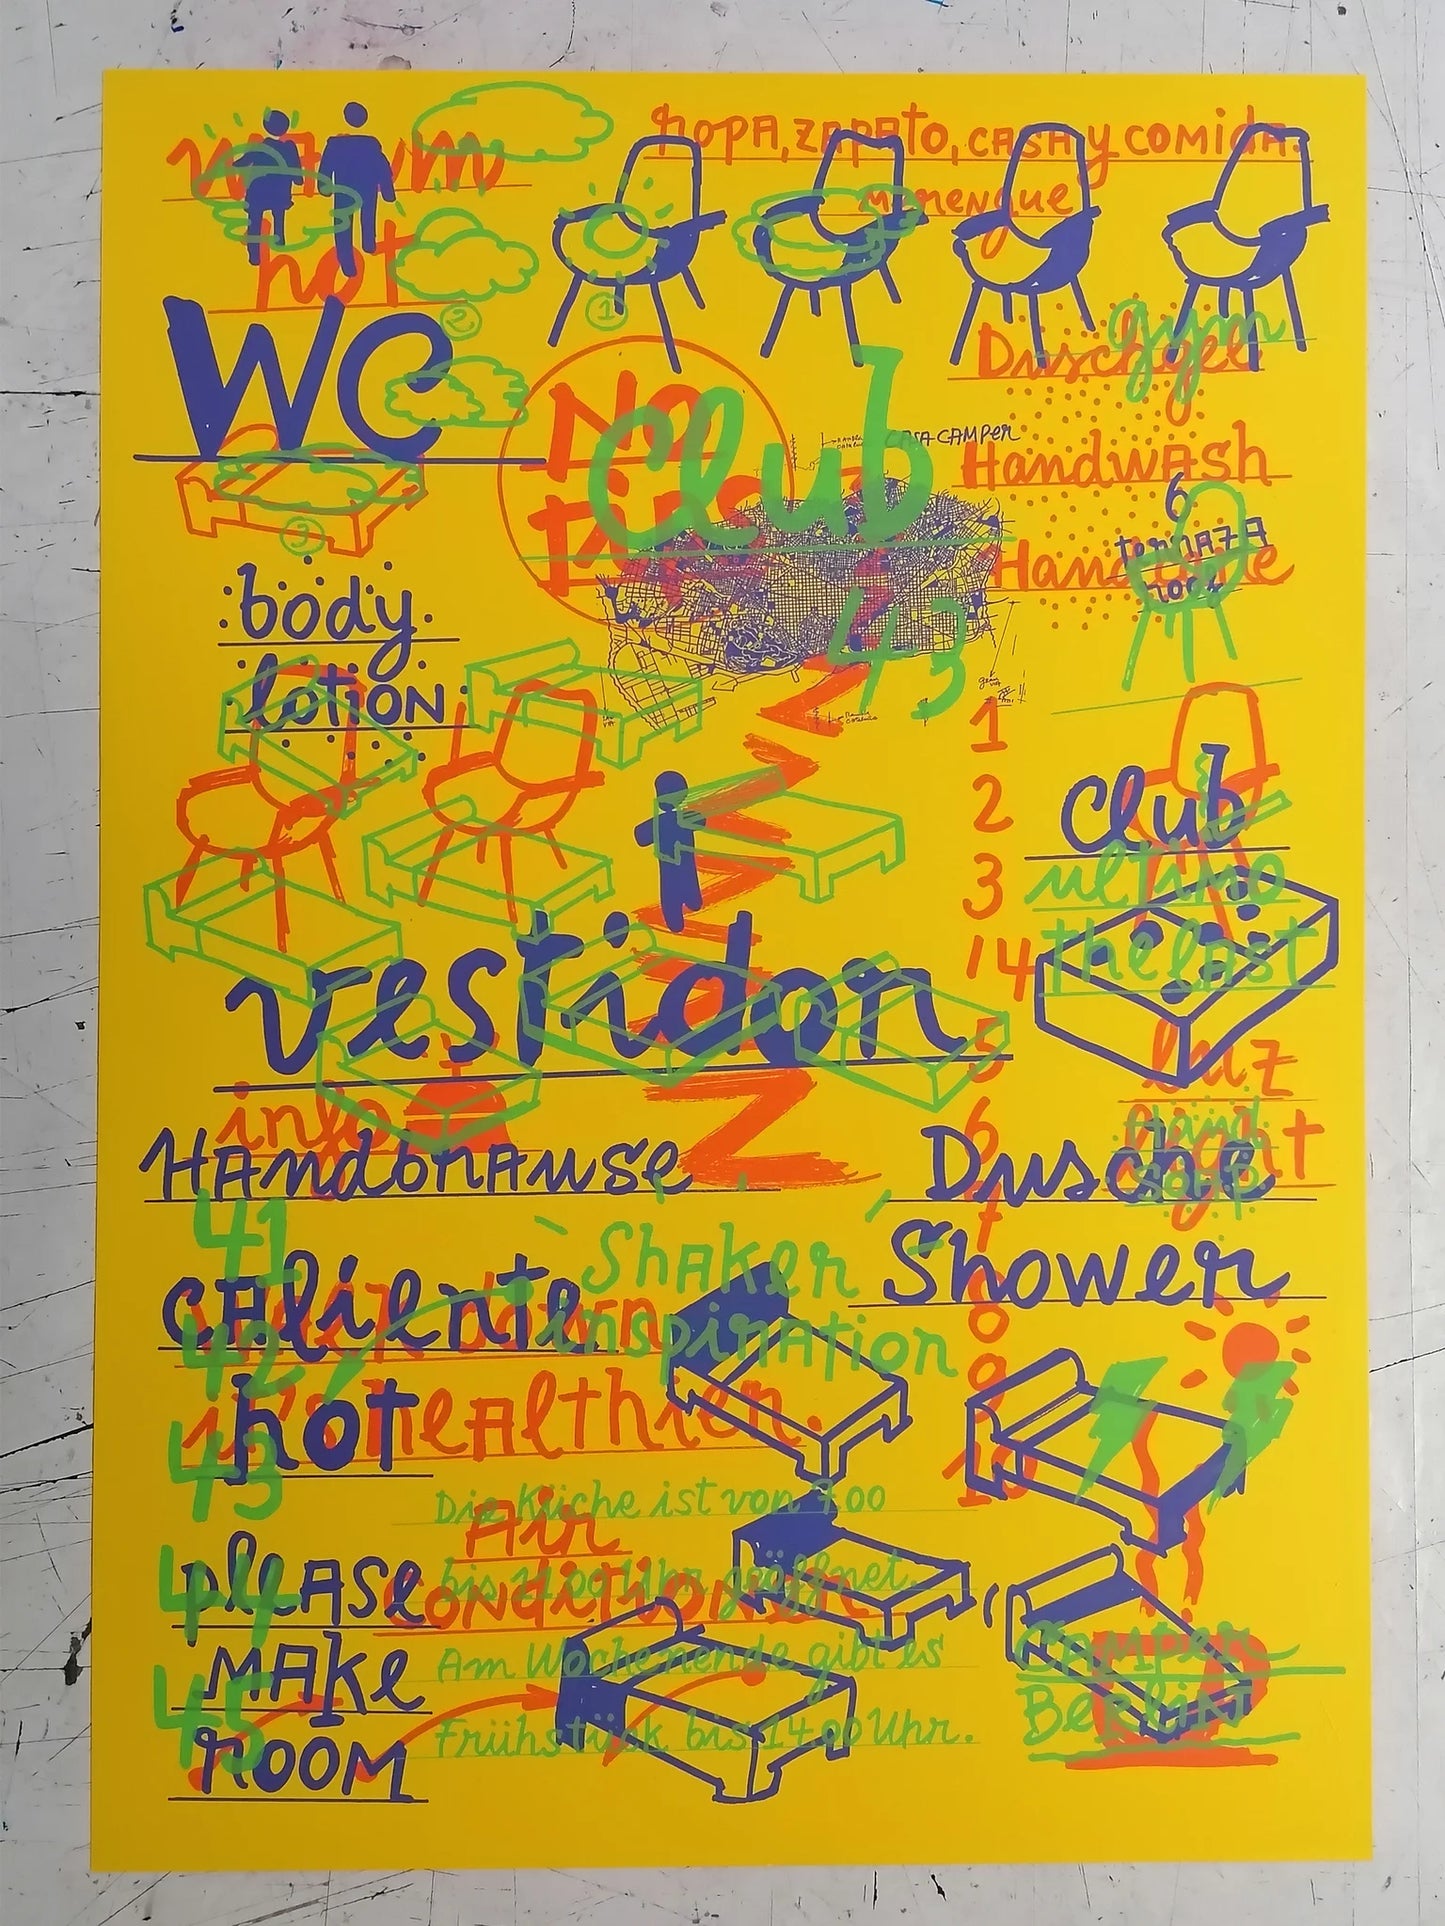 warm
hot
WC
ropa, zapato, casa y comida.
merengue
2
1
gym
Duschgel
No
Club
CASA CAMPER
Handwash
6
terraza
3
body
lotion
43
1
2
3
4
5
6
7
8
9
10
Club
ultimo
the last
vestidor
info
luz
light
Hand
soap
Handbrause
Dusche
Shower
41
42
43
44
45
Shaker
inspiration
caliente
hot
it's healthier.
Die Küche ist von 7.00
bis 21.00 Uhr geöffnet.
Am Wochenende gibt es
Frühstück bis 14.00 Uhr.
Air
conditioner
please
make
room
Camper
Berlin